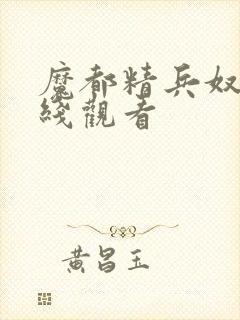 魔都精兵奴
綫觀看
黃昌玉